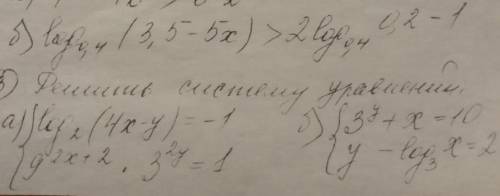 б) log₀,₄ (3,5-5x) > 2log₀,₄ 0,2 - 1
3) Решить систему уравнений.
а) { log₂ (4x-y) = -1 б) { 3ʸ + x = 10
9²ˣ⁺² · 3²ʸ = 1 y - log₃ x = 2